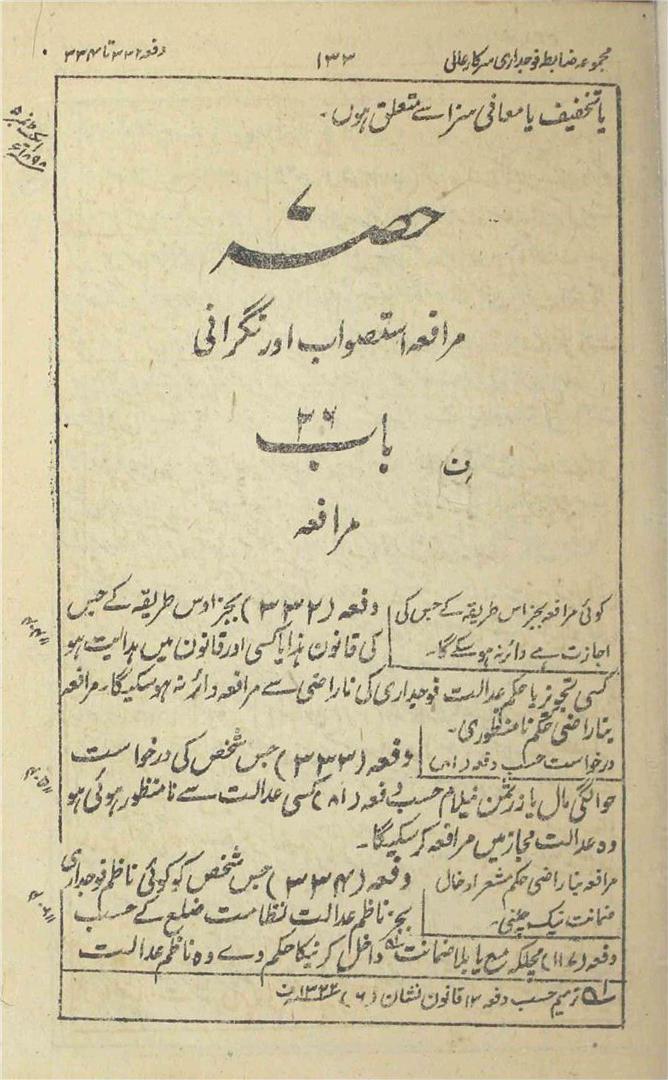 مجموعہ ضابطہ فوجداری سرکار عالی
۱۳۳
دفعہ ۳۳۲ تا ۳۳۴
یا تخفیف یا معافی سزا سے متعلق ہوں۔
حصہ ۷
مرافعہ استصواب اور نگرانی
باب ۲۶
ن
مرافعہ
کوئی مرافعہ بجز اس طریقہ کے جس کی
اجازت ہے دائر نہ ہوسکے گا۔
دفعہ (۳۳۲) بجز اوس طریقہ کے جس
کی قانون ہذا یا کسی اور قانون میں ہدایت ہو
کسی تجویز یا حکم عدالت فوجداری کی ناراضی سے مرافعہ دائر نہ ہوسکیگا۔ مرافعہ
بناراضی حکم نامنظوری۔
درخواست حسب دفعہ (۸۱)
دفعہ (۳۳۳) جس شخص کی درخواست
حوالگی مال یا زرثمن نیلام حسب دفعہ (۸۱) کسی عدالت سے نامنظور ہوئی ہو
وہ عدالت مجاز میں مرافعہ کرسکیگا۔
مرافعہ بناراضی حکم مشعر ادخال
ضمانت نیک چلنی۔
دفعہ (۳۳۴) جس شخص کو کوئی ناظم فوجداری
بجز ناظم عدالت نظامت ضلع کے حسب
دفعہ (۱۱۷) مچلکہ مع یا بلا ضمانت داخل کرنیکا حکم دے وہ ناظم عدالت
ترمیم حسب دفعہ ۱۳ قانون نشان (۶) ۱۳۲۲ ف